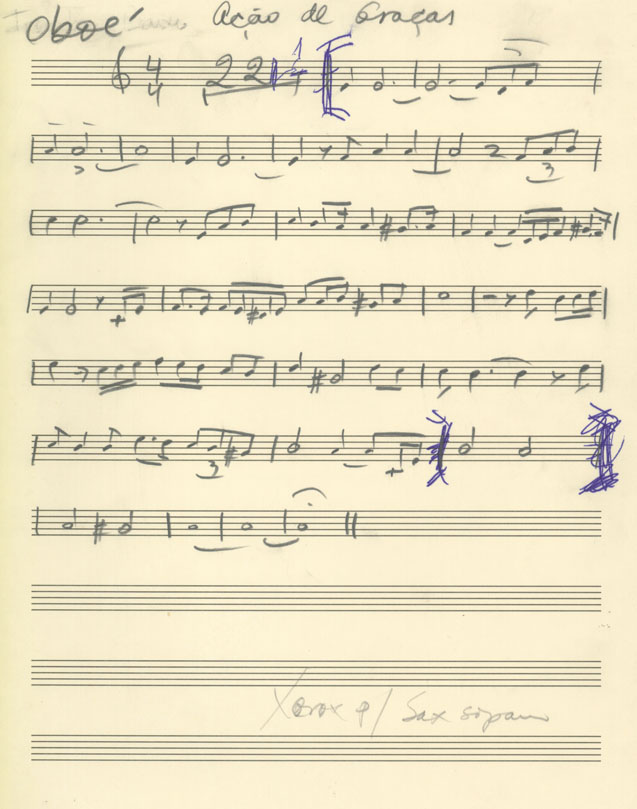 Oboé Ação de Graças
4
4
22
3
3
Xerox p/ Sax soprano